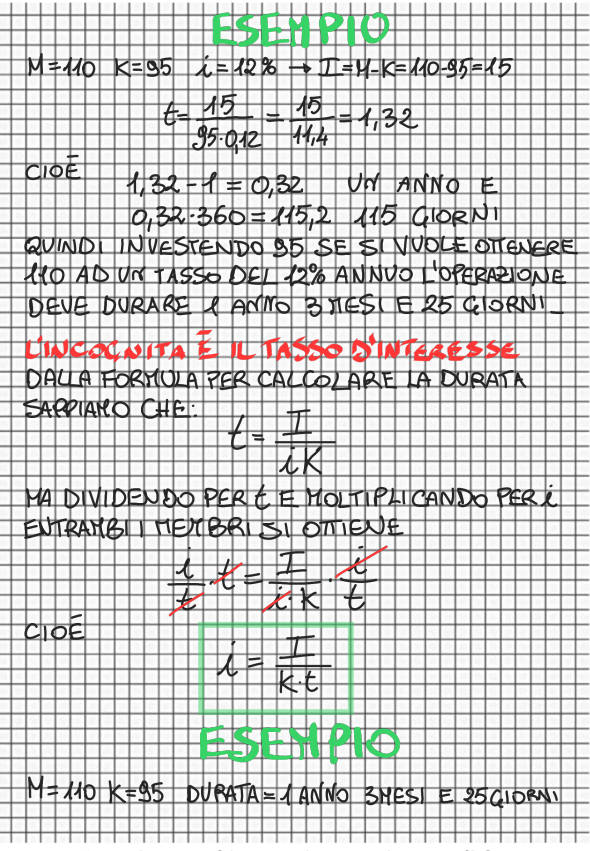 ESEMPIO
M=110 K=95 i=12% → I=M-K=110-95=15
t= 15/95·0,12 = 15/11,4 = 1,32
CIOÈ
1,32-1=0,32 UN ANNO E
0,32·360=115,2 115 GIORNI
QUINDI INVESTENDO 95 SE SI VUOLE OTTENERE
110 AD UN TASSO DEL 12% ANNUO L'OPERAZIONE
DEVE DURARE 1 ANNO 3 MESI E 25 GIORNI_
L'INCOGNITA È IL TASSO D'INTERESSE
DALLA FORMULA PER CALCOLARE LA DURATA
SAPPIAMO CHE:
t= I/iK
MA DIVIDENDO PER t E MOLTIPLICANDO PER i
ENTRAMBI I MEMBRI SI OTTIENE
i/t · t = I/i·K · i/t
CIOÈ
i = I/K·t
ESEMPIO
M=110 K=95 DURATA=1 ANNO 3 MESI E 25 GIORNI